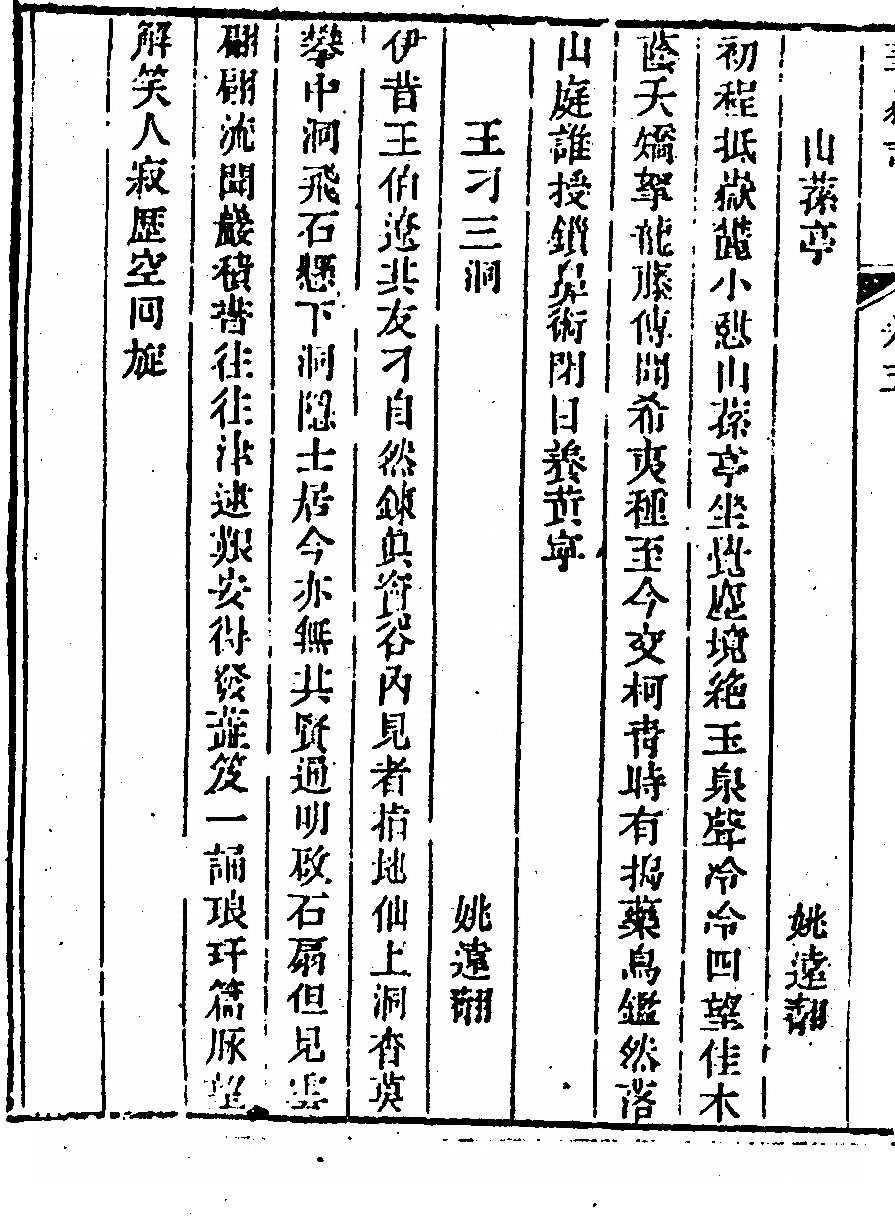 山蓀亭 姚遠翿
初程抵嶽麓小憇山蓀亭坐覺塵境絶玉泉聲冷冷四望佳木
蔭夭矯拏龍藤傳聞希夷種至今交柯靑時有搗藥鳥鏗然落
山庭誰授鎖鼻術閉日養黃寧
王刁三洞 姚遠翿
伊昔王伯遼共友刁自然鍊眞資谷內見者指地仙上洞杳莫
攀中洞飛石懸下洞隠士居今亦無其賢通明啟石扇但見雲
翩翩流聞巖積書往往津逮艱安得發笈一誦琅玕篇脉望
解笑人寂歷空回旋